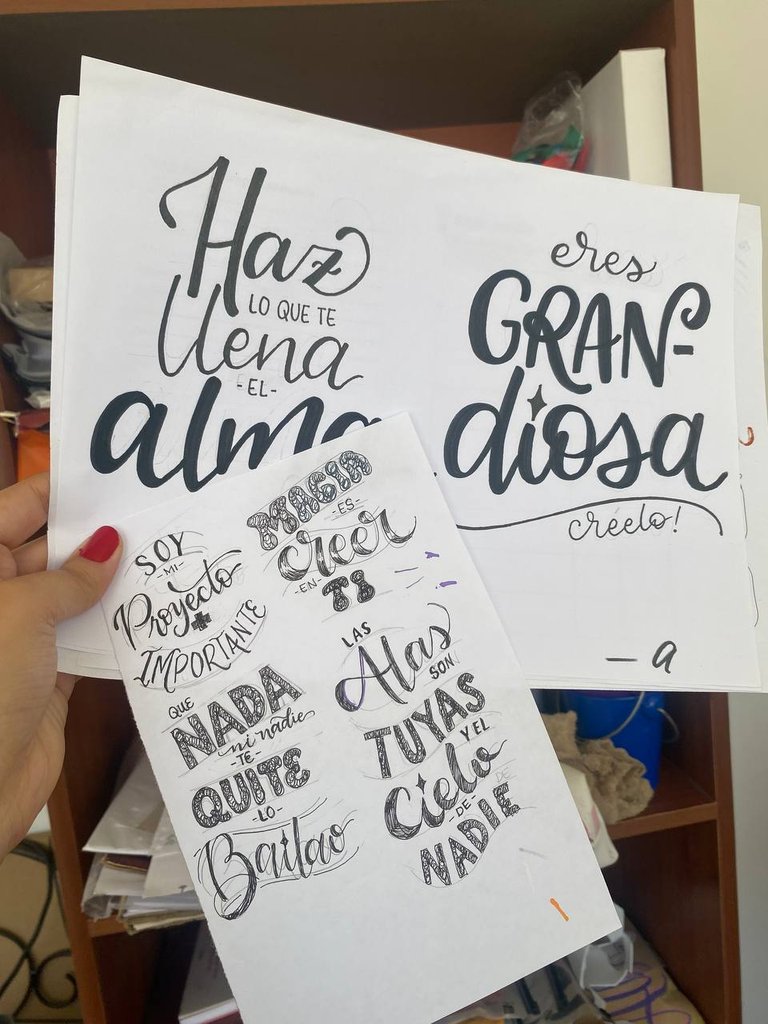 Haz
LO QUE TE
llena
-EL-
alma
eres
GRAN-
diosa
créelo!
— a
MAGIA
-ES-
creer
-EN-
TI
SOY
-MI-
Proyecto
+
IMPORTANTE
LAS
Alas
SON
TUYAS
Y EL
Cielo
-DE-
NADIE
QUE
NADA
ni nadie
-TE-
QUITE
-LO-
Bailao